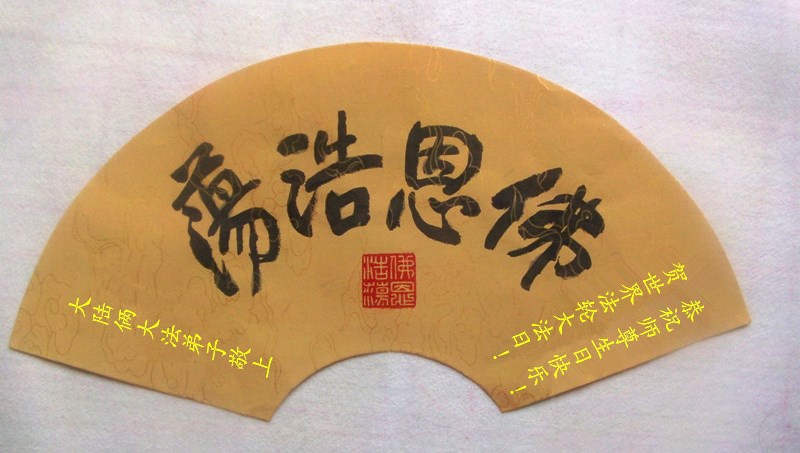 佛恩浩蕩
佛恩
浩蕩
恭祝师尊生日快乐！
贺世界法轮大法日！
大陆俩大法弟子敬上